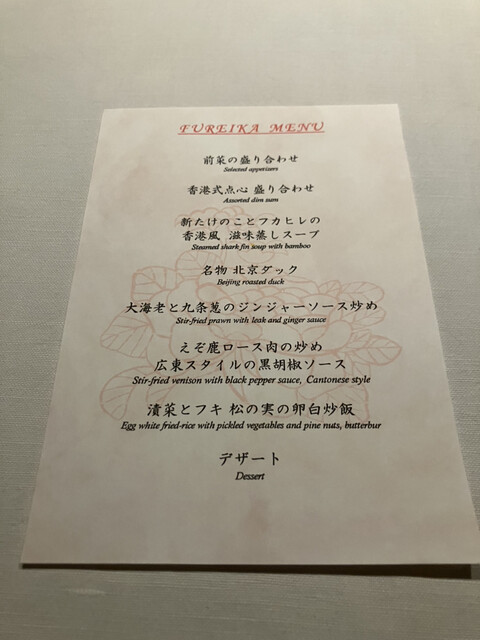 FUREIKA MENU
前菜の盛り合わせ
Selected appetizers
香港式点心 盛り合わせ
Assorted dim sum
新たけのことフカヒレの
香港風 滋味蒸しスープ
Steamed shark fin soup with bamboo
名物 北京ダック
Beijing roasted duck
大海老と九条葱のジンジャーソース炒め
Stir-fried prawn with leak and ginger sauce
えぞ鹿ロース肉の炒め
広東スタイルの黒胡椒ソース
Stir-fried venison with black pepper sauce, Cantonese style
漬菜とフキ 松の実の卵白炒飯
Egg white fried-rice with pickled vegetables and pine nuts, butterbur
デザート
Dessert